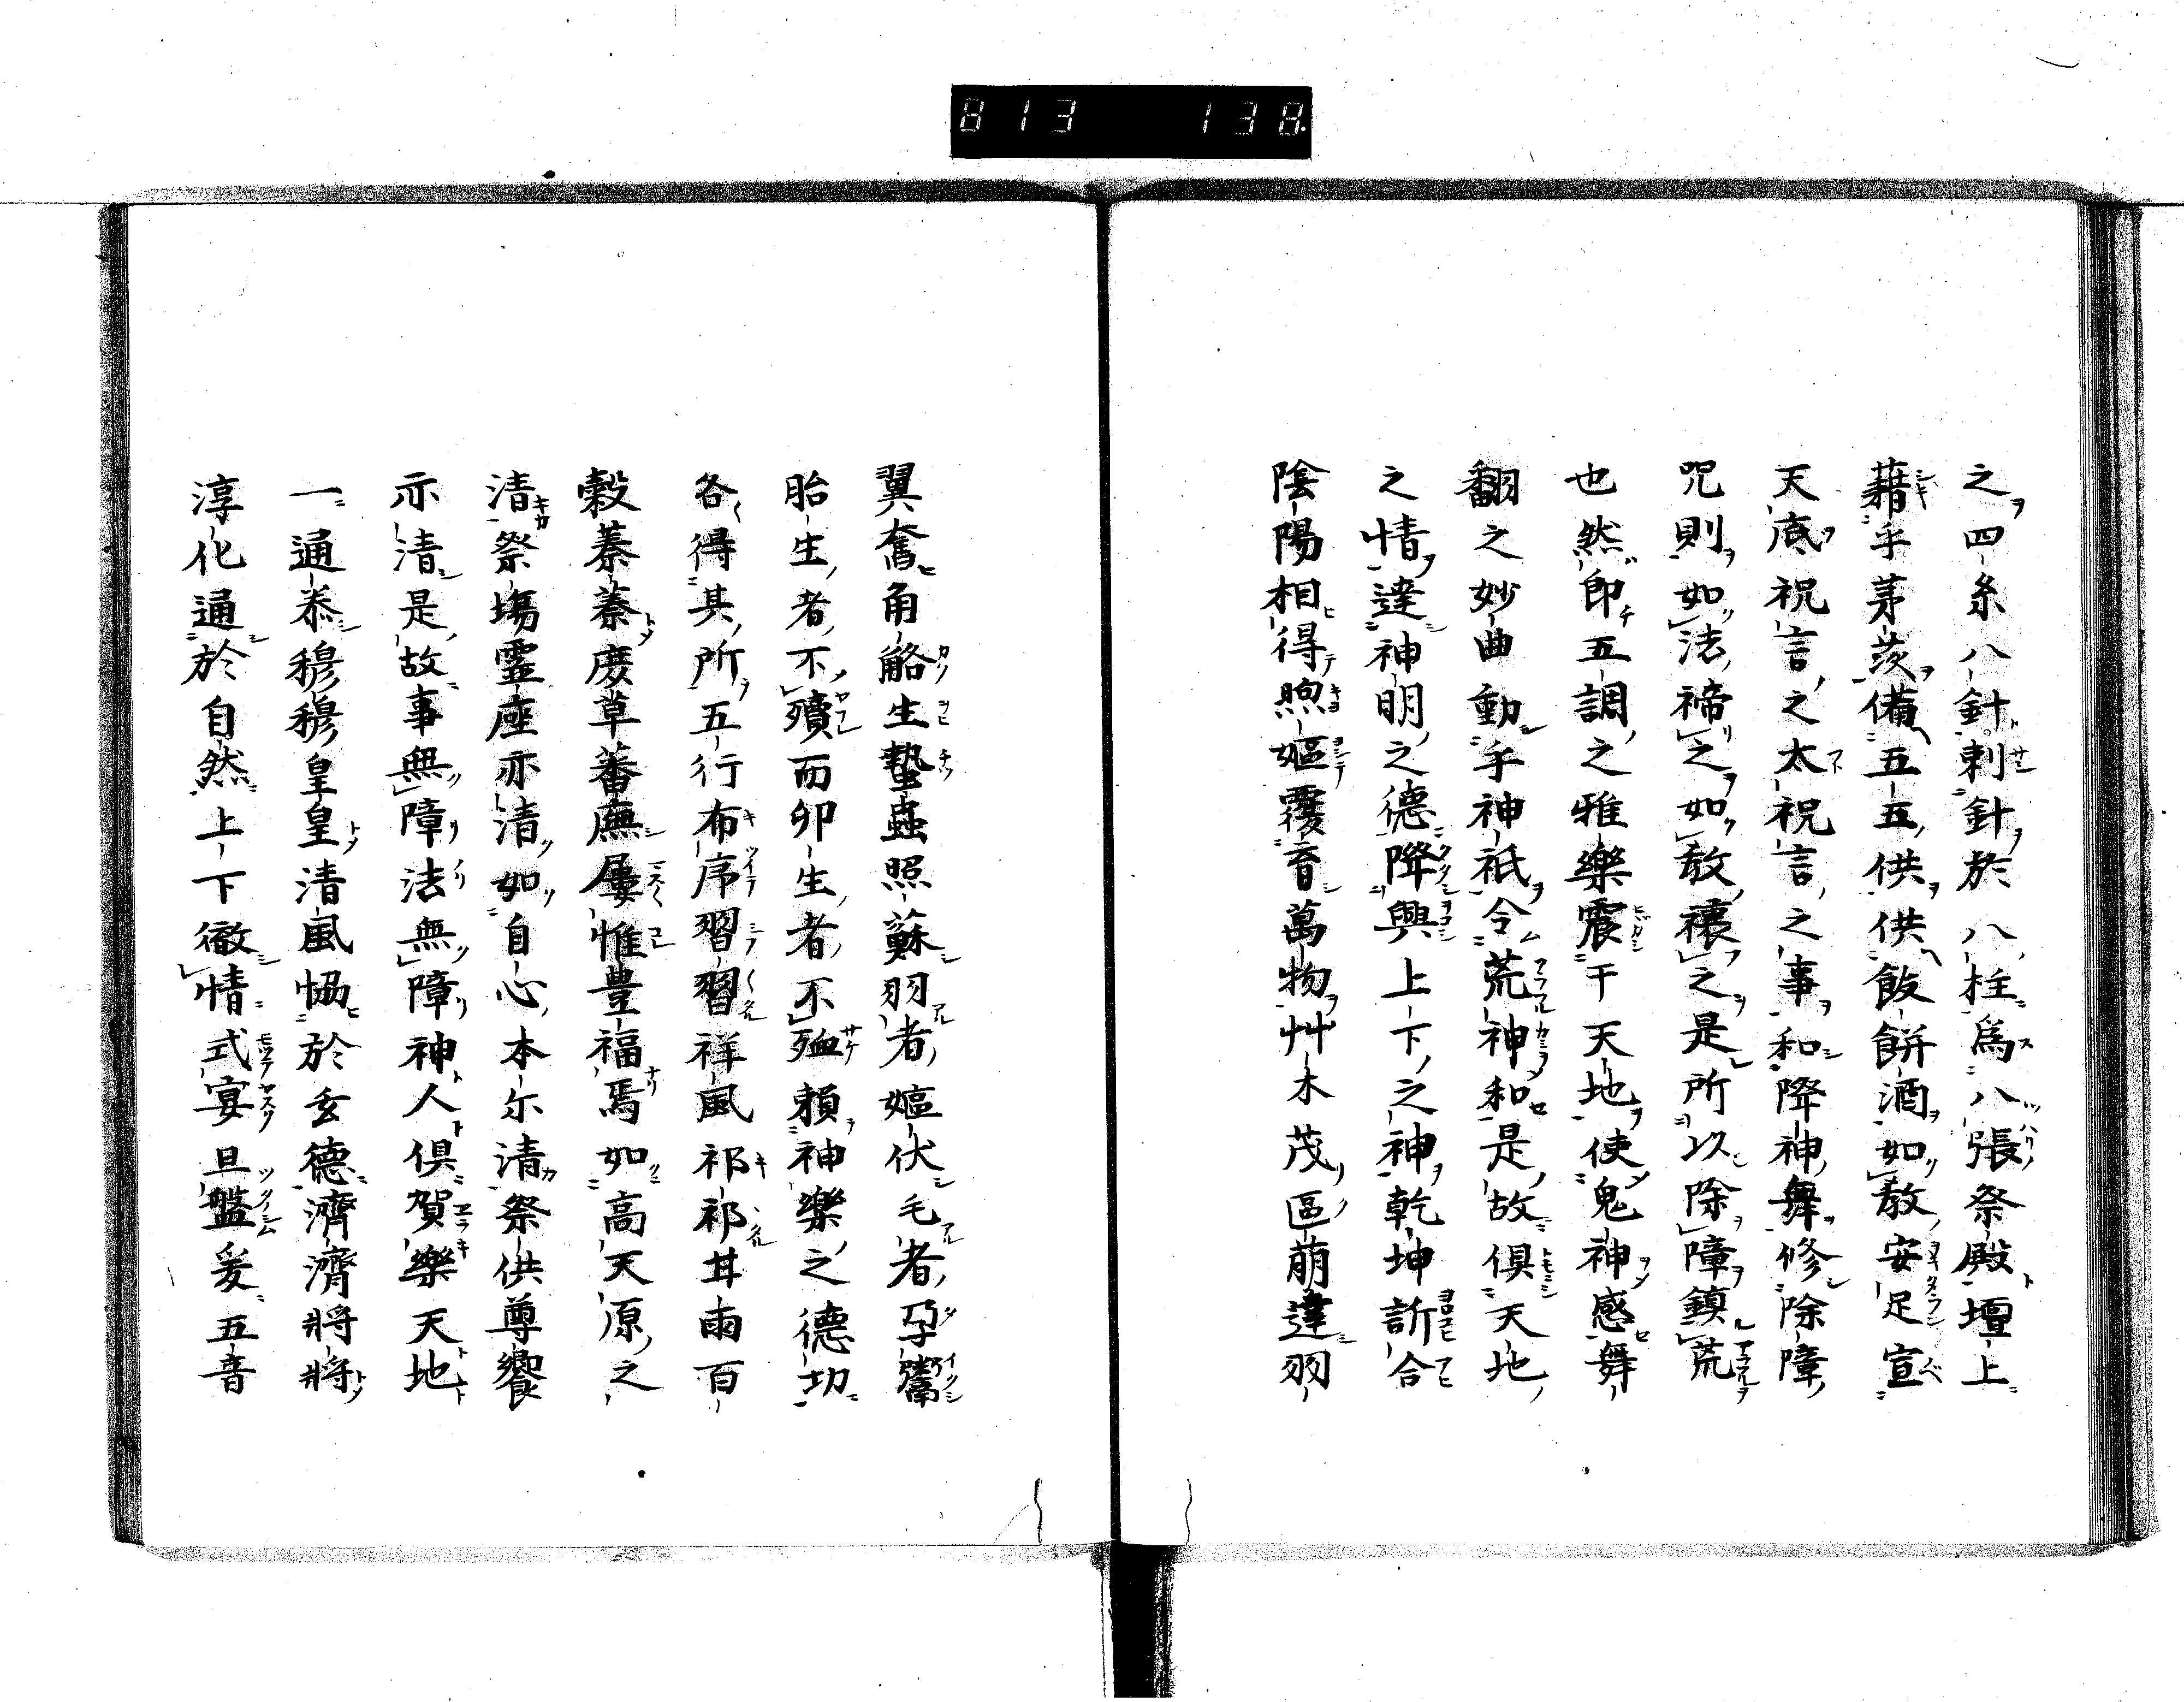 813 138.
之四糸八針刺針於八柱爲八張祭殿壇上
藉乎茅茨備五五供供飯餅酒如教安足宣
天底祝言之太祝言之事和降神舞修除障
咒則如法禘之如教禳之是所以除障鎮荒
也然即五調之雅樂震干天地使鬼神感舞
翻之妙曲動乎神祇令荒神和是故俱天地
之情達神明之德降興上下之神乾坤訢合
陰陽相得煦嫗覆育萬物艸木茂區萌達羽
翼奮角觡生蟄蟲照蘇羽者嫗伏毛者孕鬻
胎生者不殰而卵生者不殈賴神樂之德功
各得其所五行布序習習祥風祁祁甘雨百
穀蓁蓁庶草蕃廡屢惟豊福焉如高天原之
清祭場霊座亦清如自心本尓清祭供尊饗
亦清是故事無障法無障神人俱賀樂天地
一通泰穆穆皇皇清風恊於玄德濟濟将将
淳化通於自然上下徹情式宴且盤爰五音